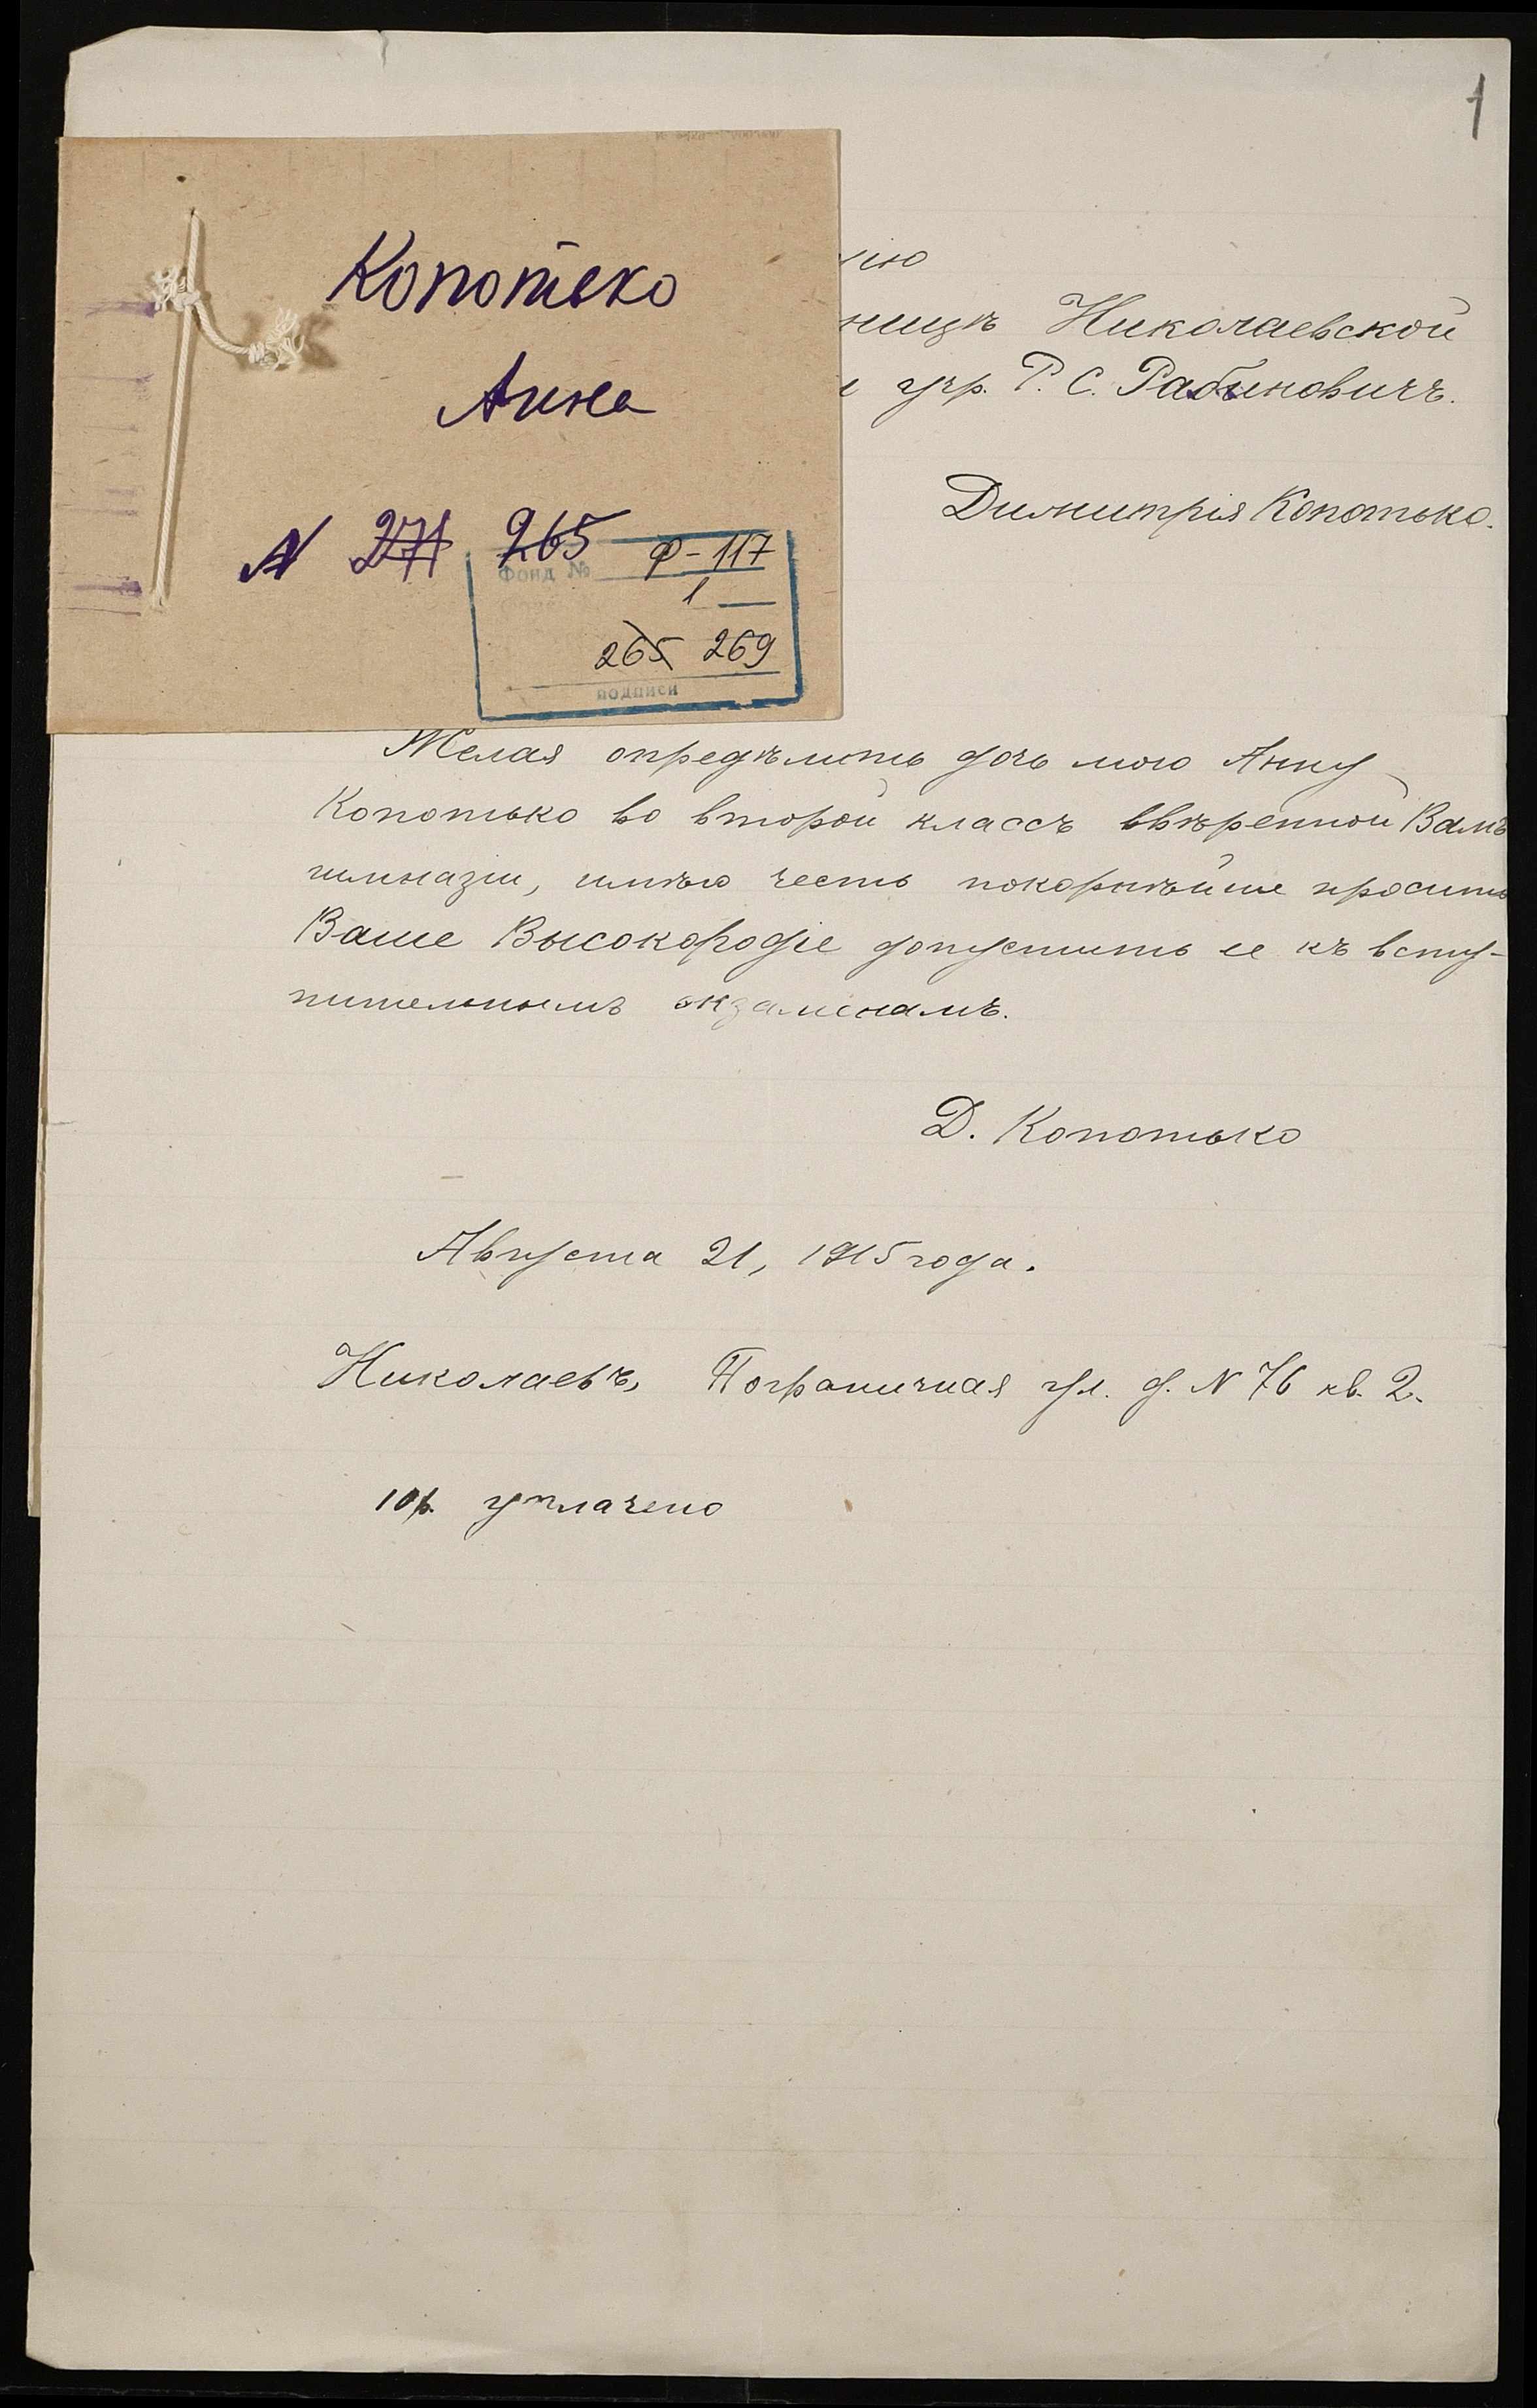 1
Копотько
Анна
N 271 265
Фонд № Ф-117
1
265 269
подписи
нію
ницѣ Николаевской
учр. Р. С. Рабиновичъ.
Димитрія Копотько.
Желая опредѣлить дочь мою Анну
Копотько во второй классъ ввѣренной Вамъ
гимназіи, имѣю честь покорнѣйше просить
Ваше Высокородіе допустить ее къ всту-
пительнымъ экзаменамъ.
Д. Копотько
Августа 21, 1915 года.
Николаевъ, Пограничная ул. д. N 76 кв. 2.
10 р. уплачено